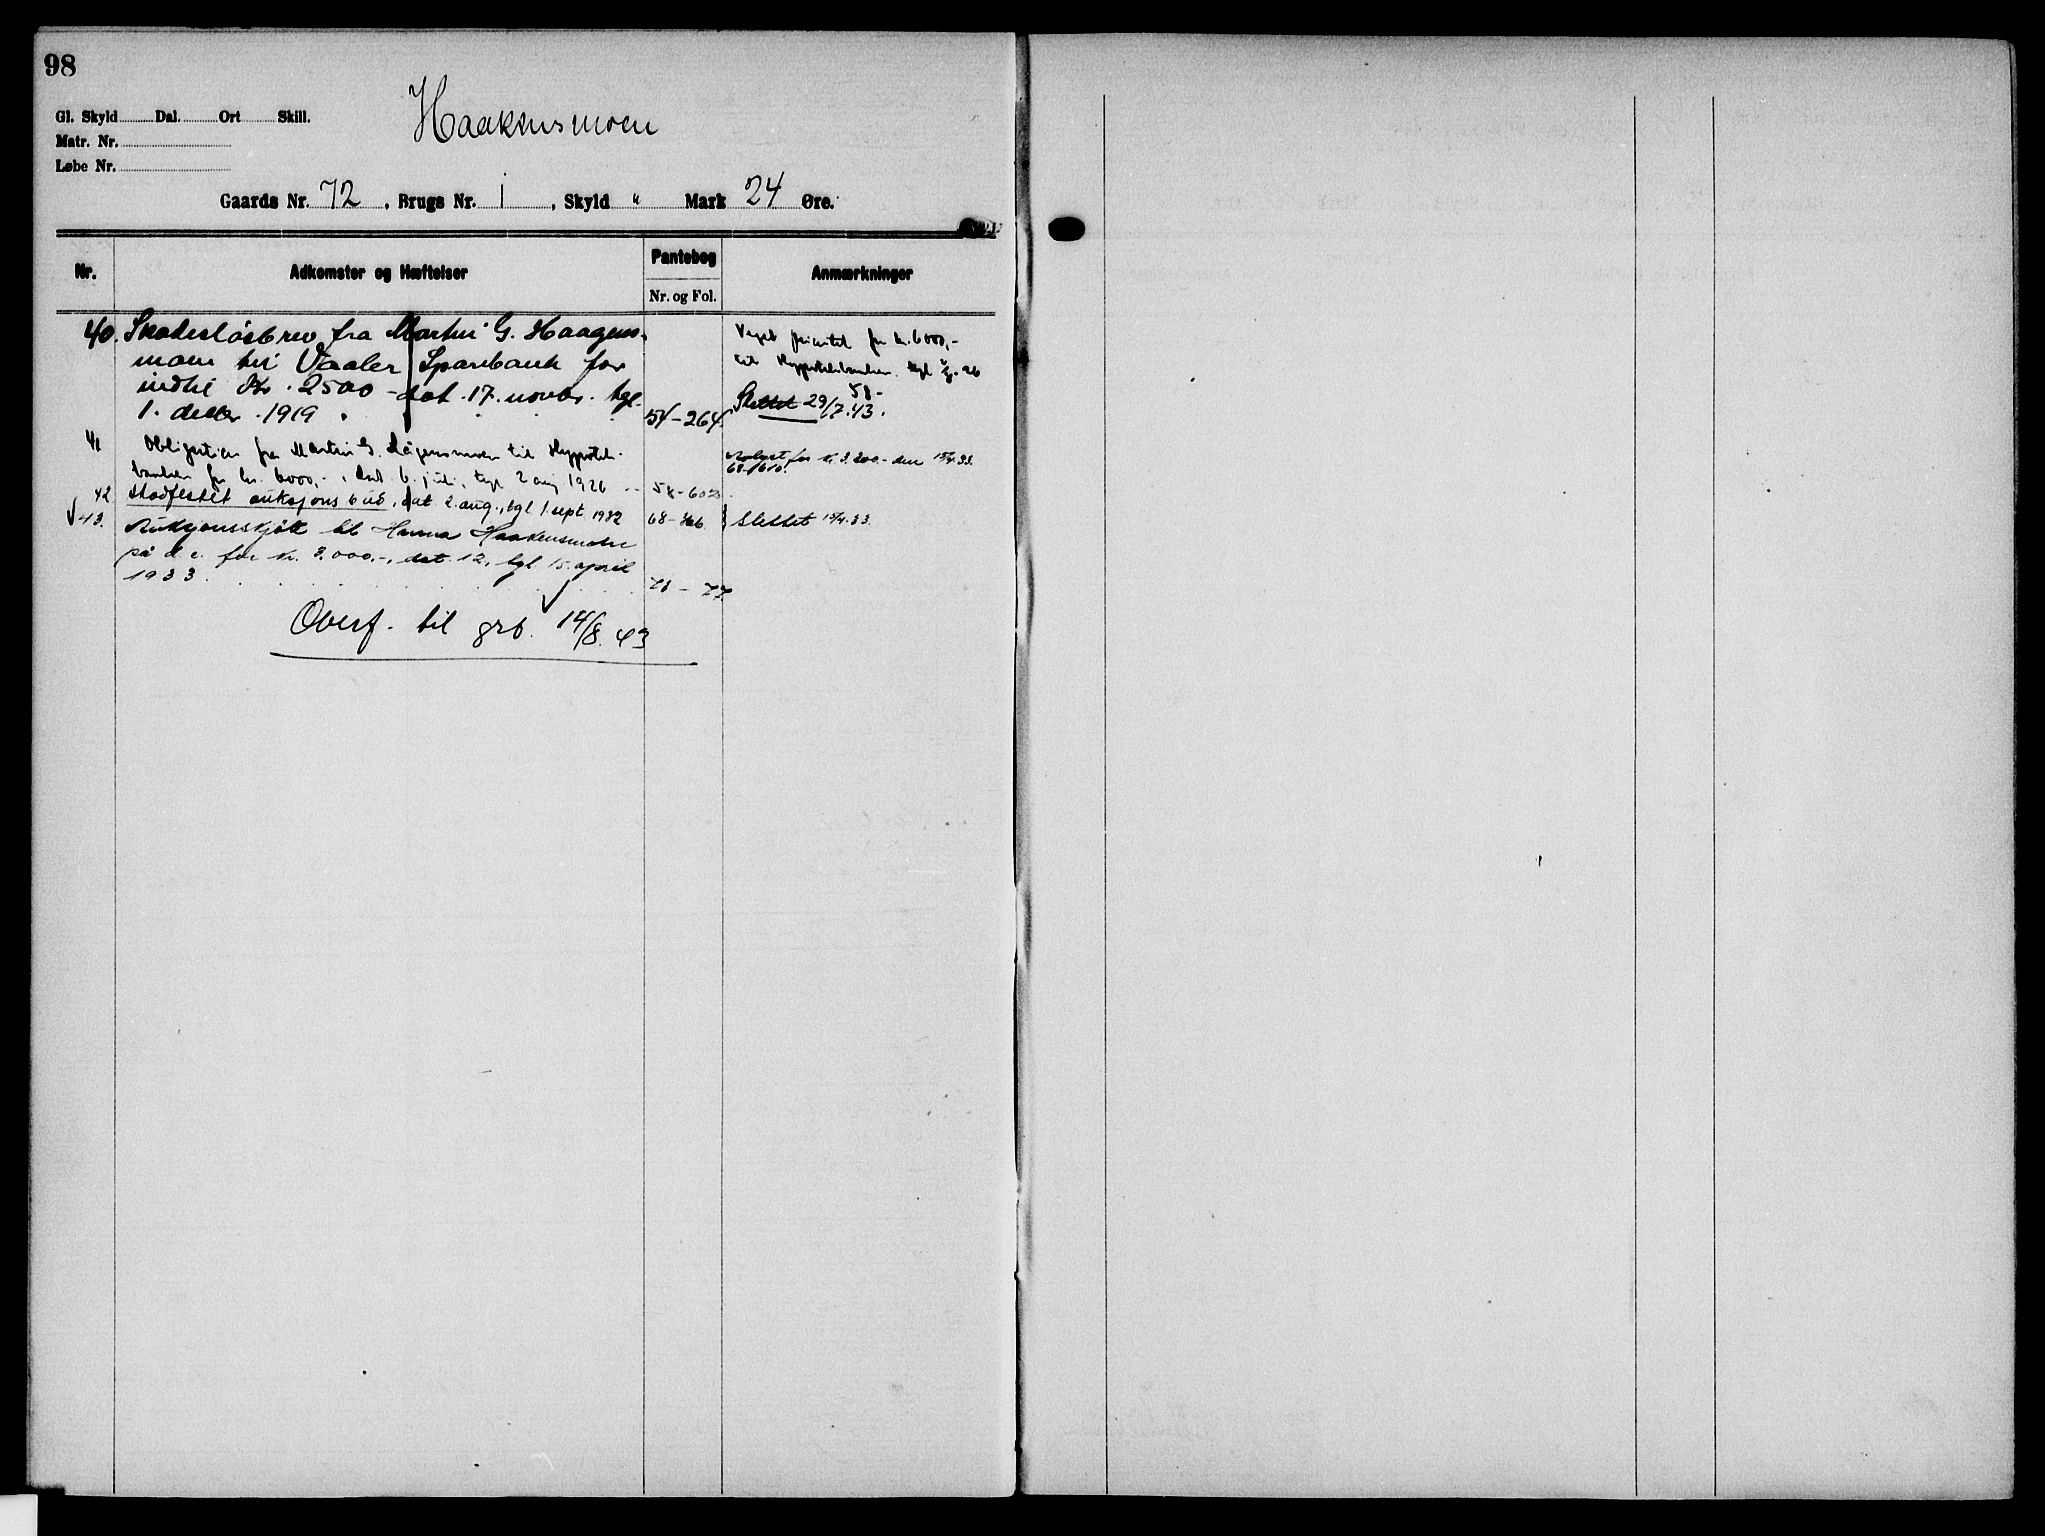 98
Haakensmoen
Gl. Skyld Dal. Ort Skill.
Matr. Nr.
Løbe Nr.
Gaards Nr. 72, Brugs Nr. 1, Skyld " Mark 24 Øre.
Nr. Adkomster og Hæftelser Pantebog Nr. og Fol. Anmærkninger
40. Skadesløsbrev fra Martin G. Haagens-
moen til Vaaler Sparebank for
indtil Kr. 2500 - dat. 17. novbr. tgl.
1. decbr 1919. 54-264
Veget prioritet for kr. 6000,-
til Hypotekbanken. tgl 2/8-26
58-
Slettet 29/7.43.
41 Obligation fra Martin G. Hågensmoen til Hypotek-
banken for kr. 6000,-, dat. 6. juli, tgl. 2 aug 1926 58-602
Avlyst for kr. 3.200.- den 15/4.33.
68-1610.
42 Stadfestet auksjonsbud, dat 2. aug., tgl 1. sept 1932 68-366 Slettet 15/4.33.
43. Auksjonsskjøte til Hanna Haakensmoen
på d.e. for kr. 3.000.-, dat. 12, tgl. 15. april
1933. 71-77.
Overf. til grb. 14/8.43